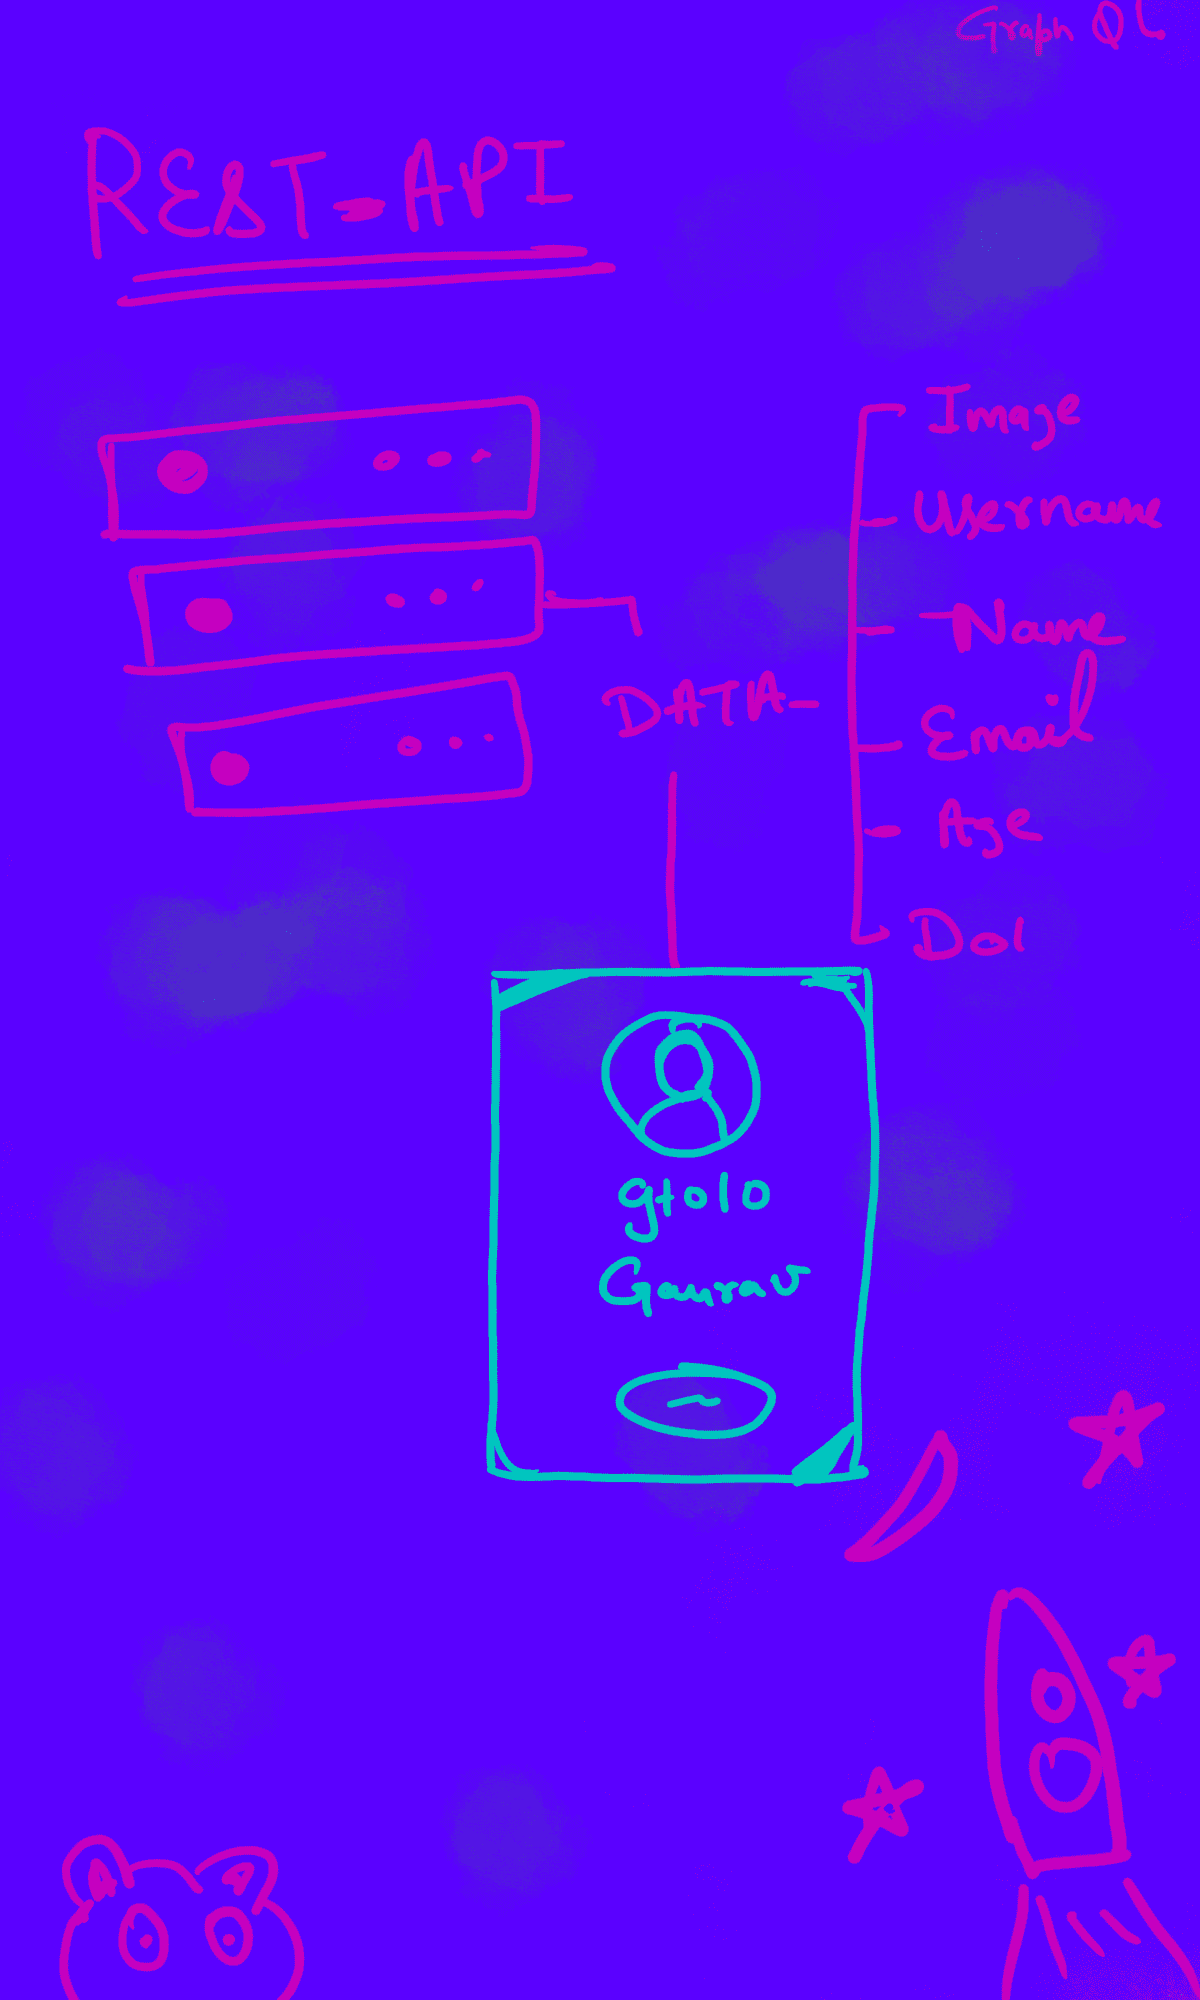 Graph QL
REST-API
Image
Username
Name
Email
DATA-
Age
DoI
gto10
Gaurav